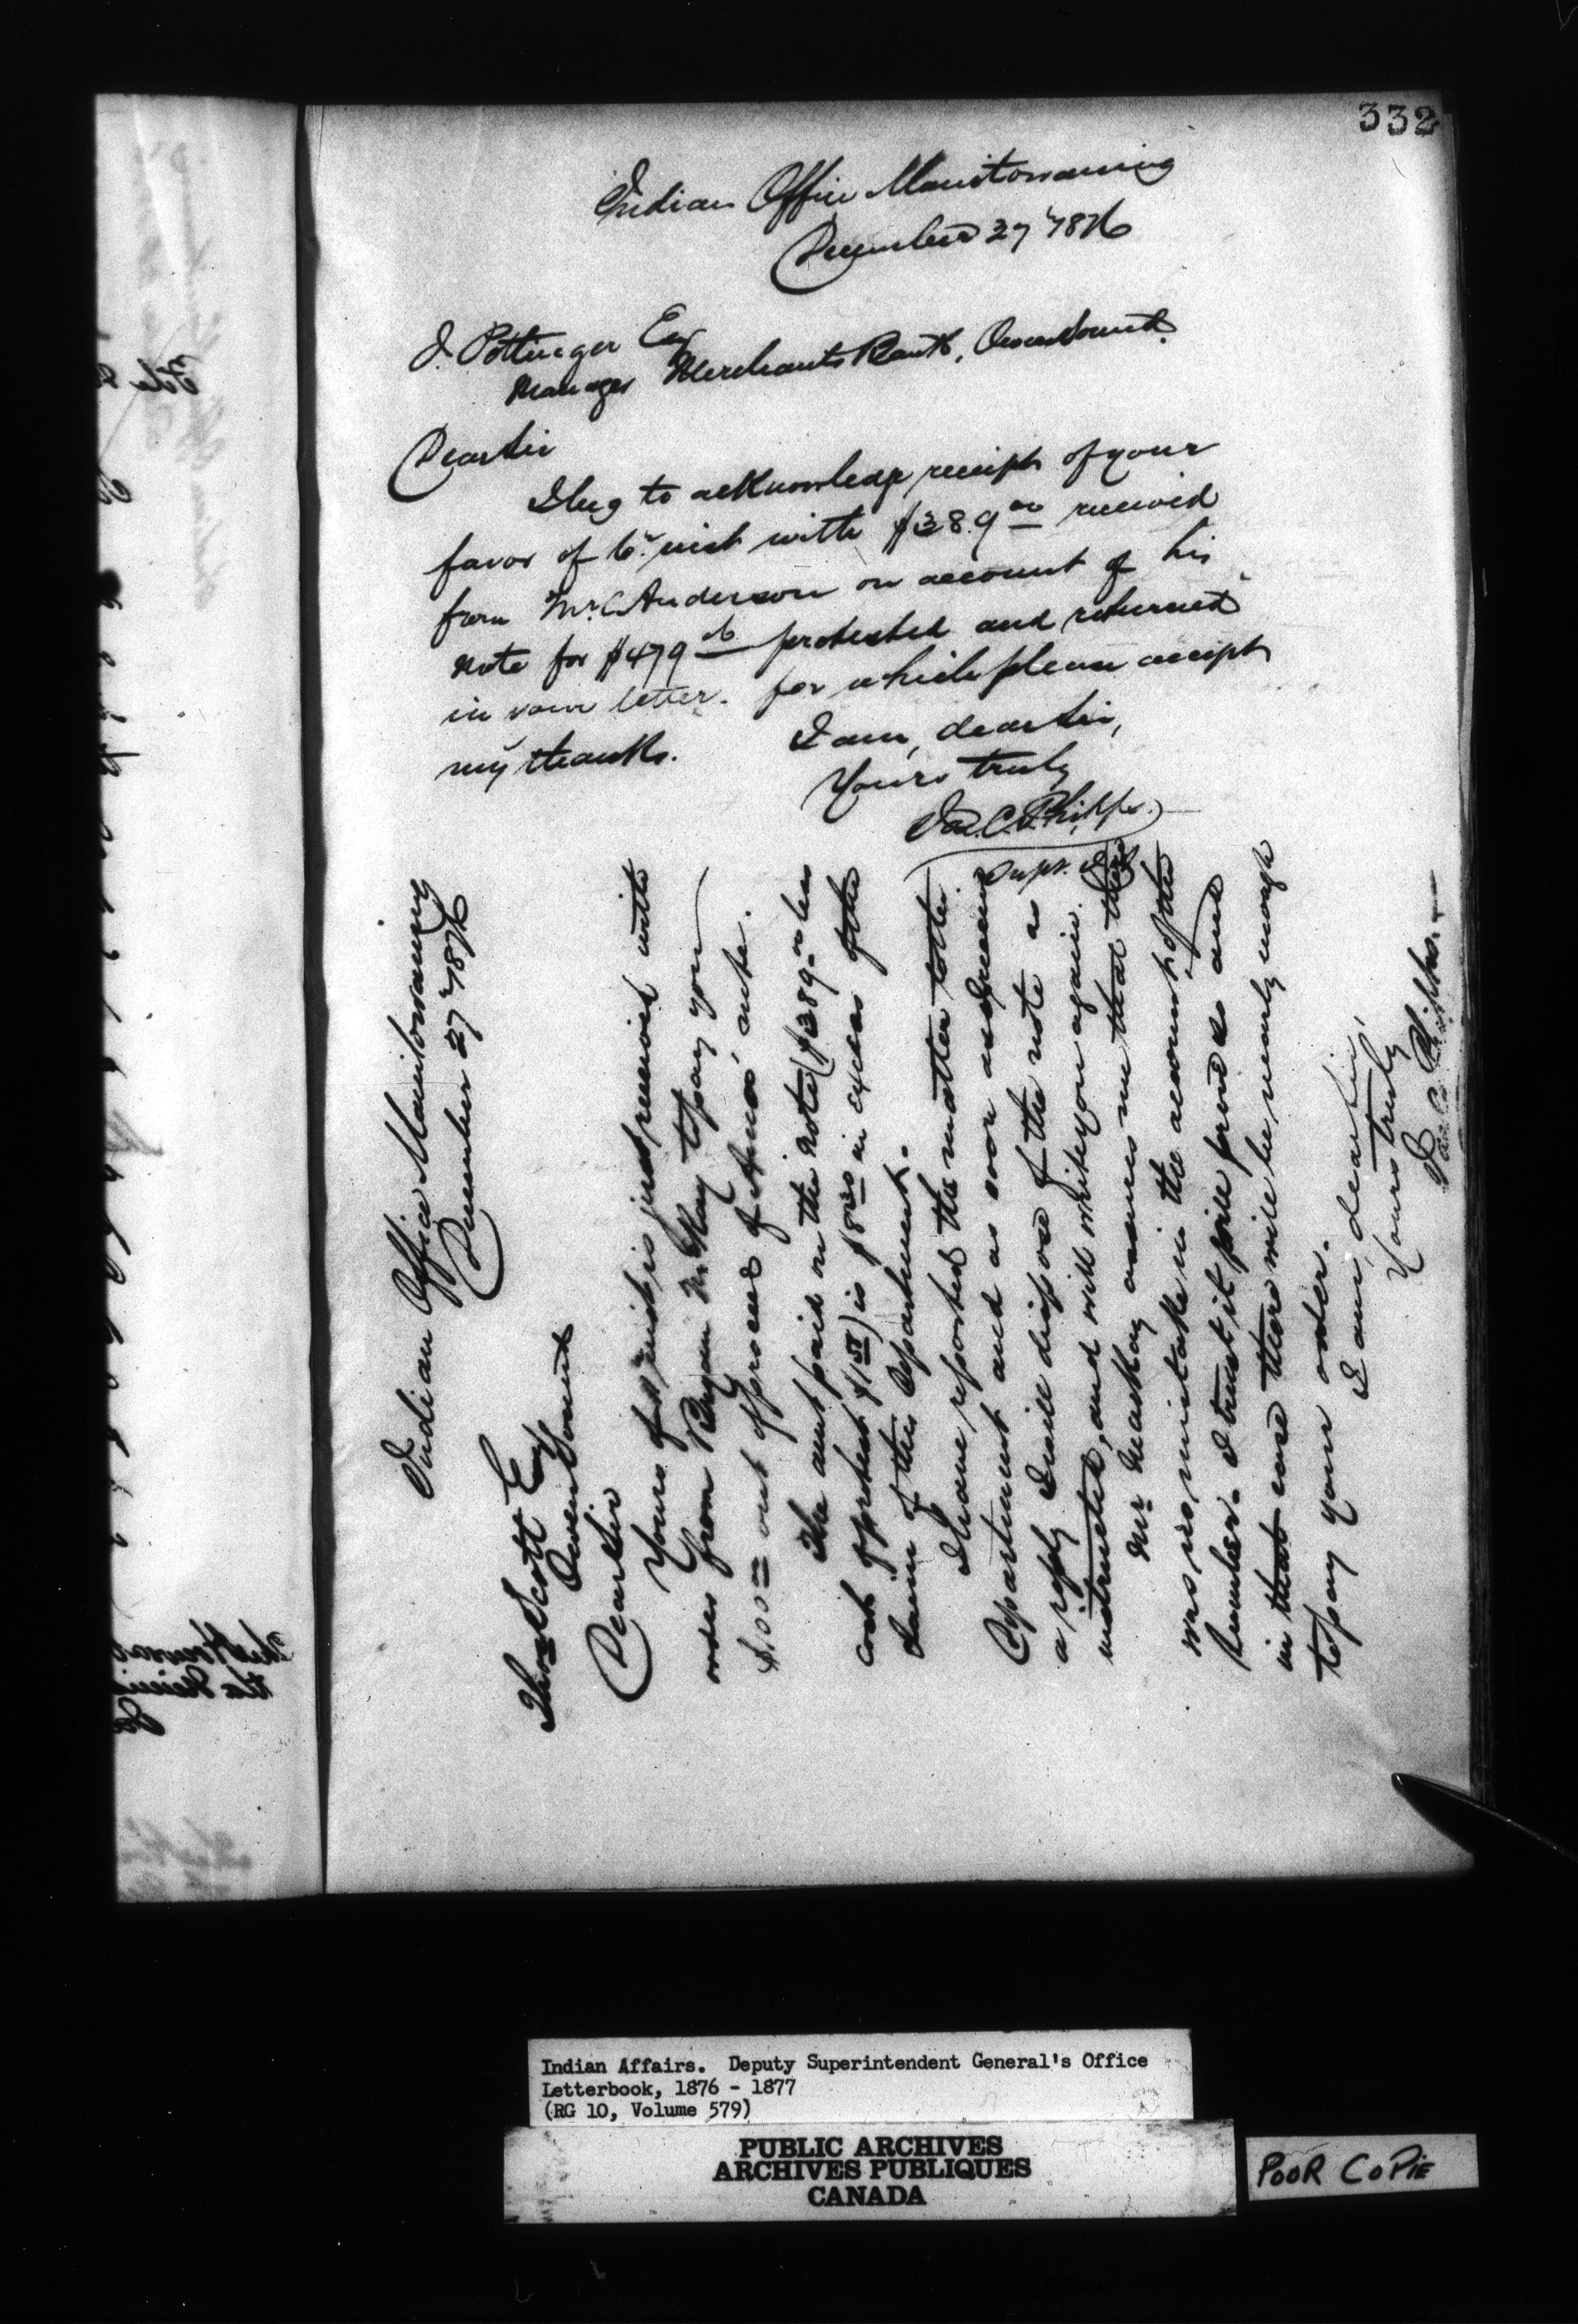 332
Indian Office Manitowaning
December 27 1876
J. Pottinger Esq
Manager Merchants Bank, Owen Sound.
Dear Sir
I beg to acknowledge receipt of your
favor of 6th inst with $389.00 received
from Mr C. Anderson on account of his
note for $479 protested and returned
in your letter. for which please accept
my thanks.
I am, dear Sir,
Yours truly
Jas. C. Phipps.
Supt.
Indian Office Manitowaning
December 27 1876
Thos Scott Esq
Owen Sound
Dear Sir
Yours of inst, is just received with
order from Bryan McKay to pay you
$100.00 out of proceeds of Amos' note.
The amt paid on the note ($389.00 less
cost of protest $1) is in excess of the
claim of this Department.
I have reported the matter to the
Department and as soon as I receive
a reply I will dispose of the note as
instructed, and will write you again.
Mr McKay assures me that there
was no mistake in the account of the
lumber. I trust it will prove so and
in that case there will be nearly enough
to pay your order.
I am, dear Sir,
Yours truly
Jas. C. Phipps.
Indian Affairs. Deputy Superintendent General's Office
Letterbook, 1876 - 1877
(RG 10, Volume 579)
PUBLIC ARCHIVES
ARCHIVES PUBLIQUES
CANADA
POOR COPIE